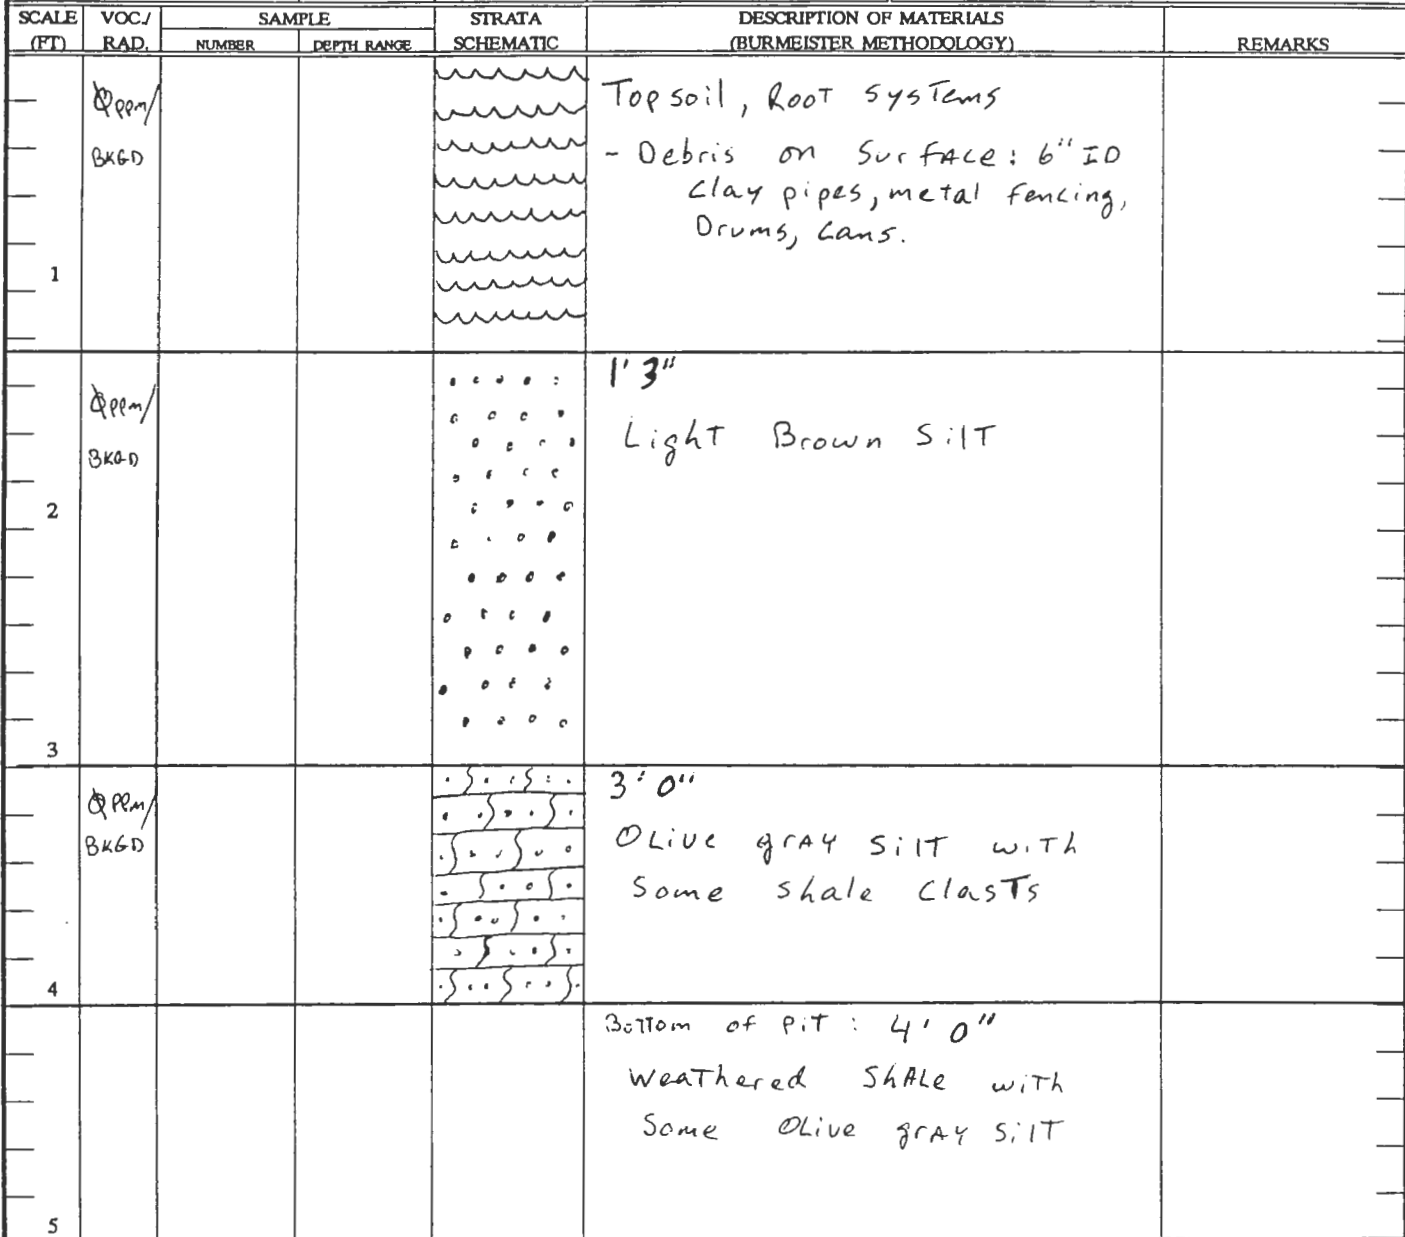 SCALE (FT) VOC./ RAD. SAMPLE NUMBER DEPTH RANGE STRATA SCHEMATIC DESCRIPTION OF MATERIALS (BURMEISTER METHODOLOGY) REMARKS
0ppm/
BKGD
Topsoil, Root Systems
- Debris on Surface: 6" ID
Clay pipes, metal fencing,
Drums, Cans.
1
1' 3"
0ppm/
BKGD
Light Brown Silt
2
3
3' 0"
0ppm/
BKGD
Olive gray Silt with
Some Shale Clasts
4
Bottom of Pit : 4' 0"
Weathered Shale with
Some Olive gray Silt
5